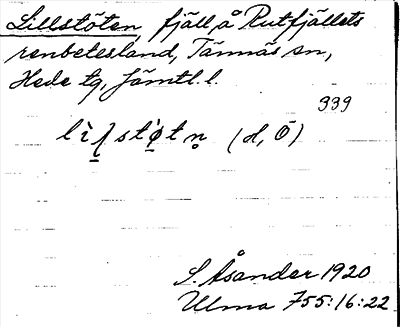 Lillstöten fjäll å Rutfjällets
renbetesland, Tännäs sn,
Hede tg, Jämtl. l.
939
(d, Ö)
S. Åsander 1920
Ulma 755:16:22